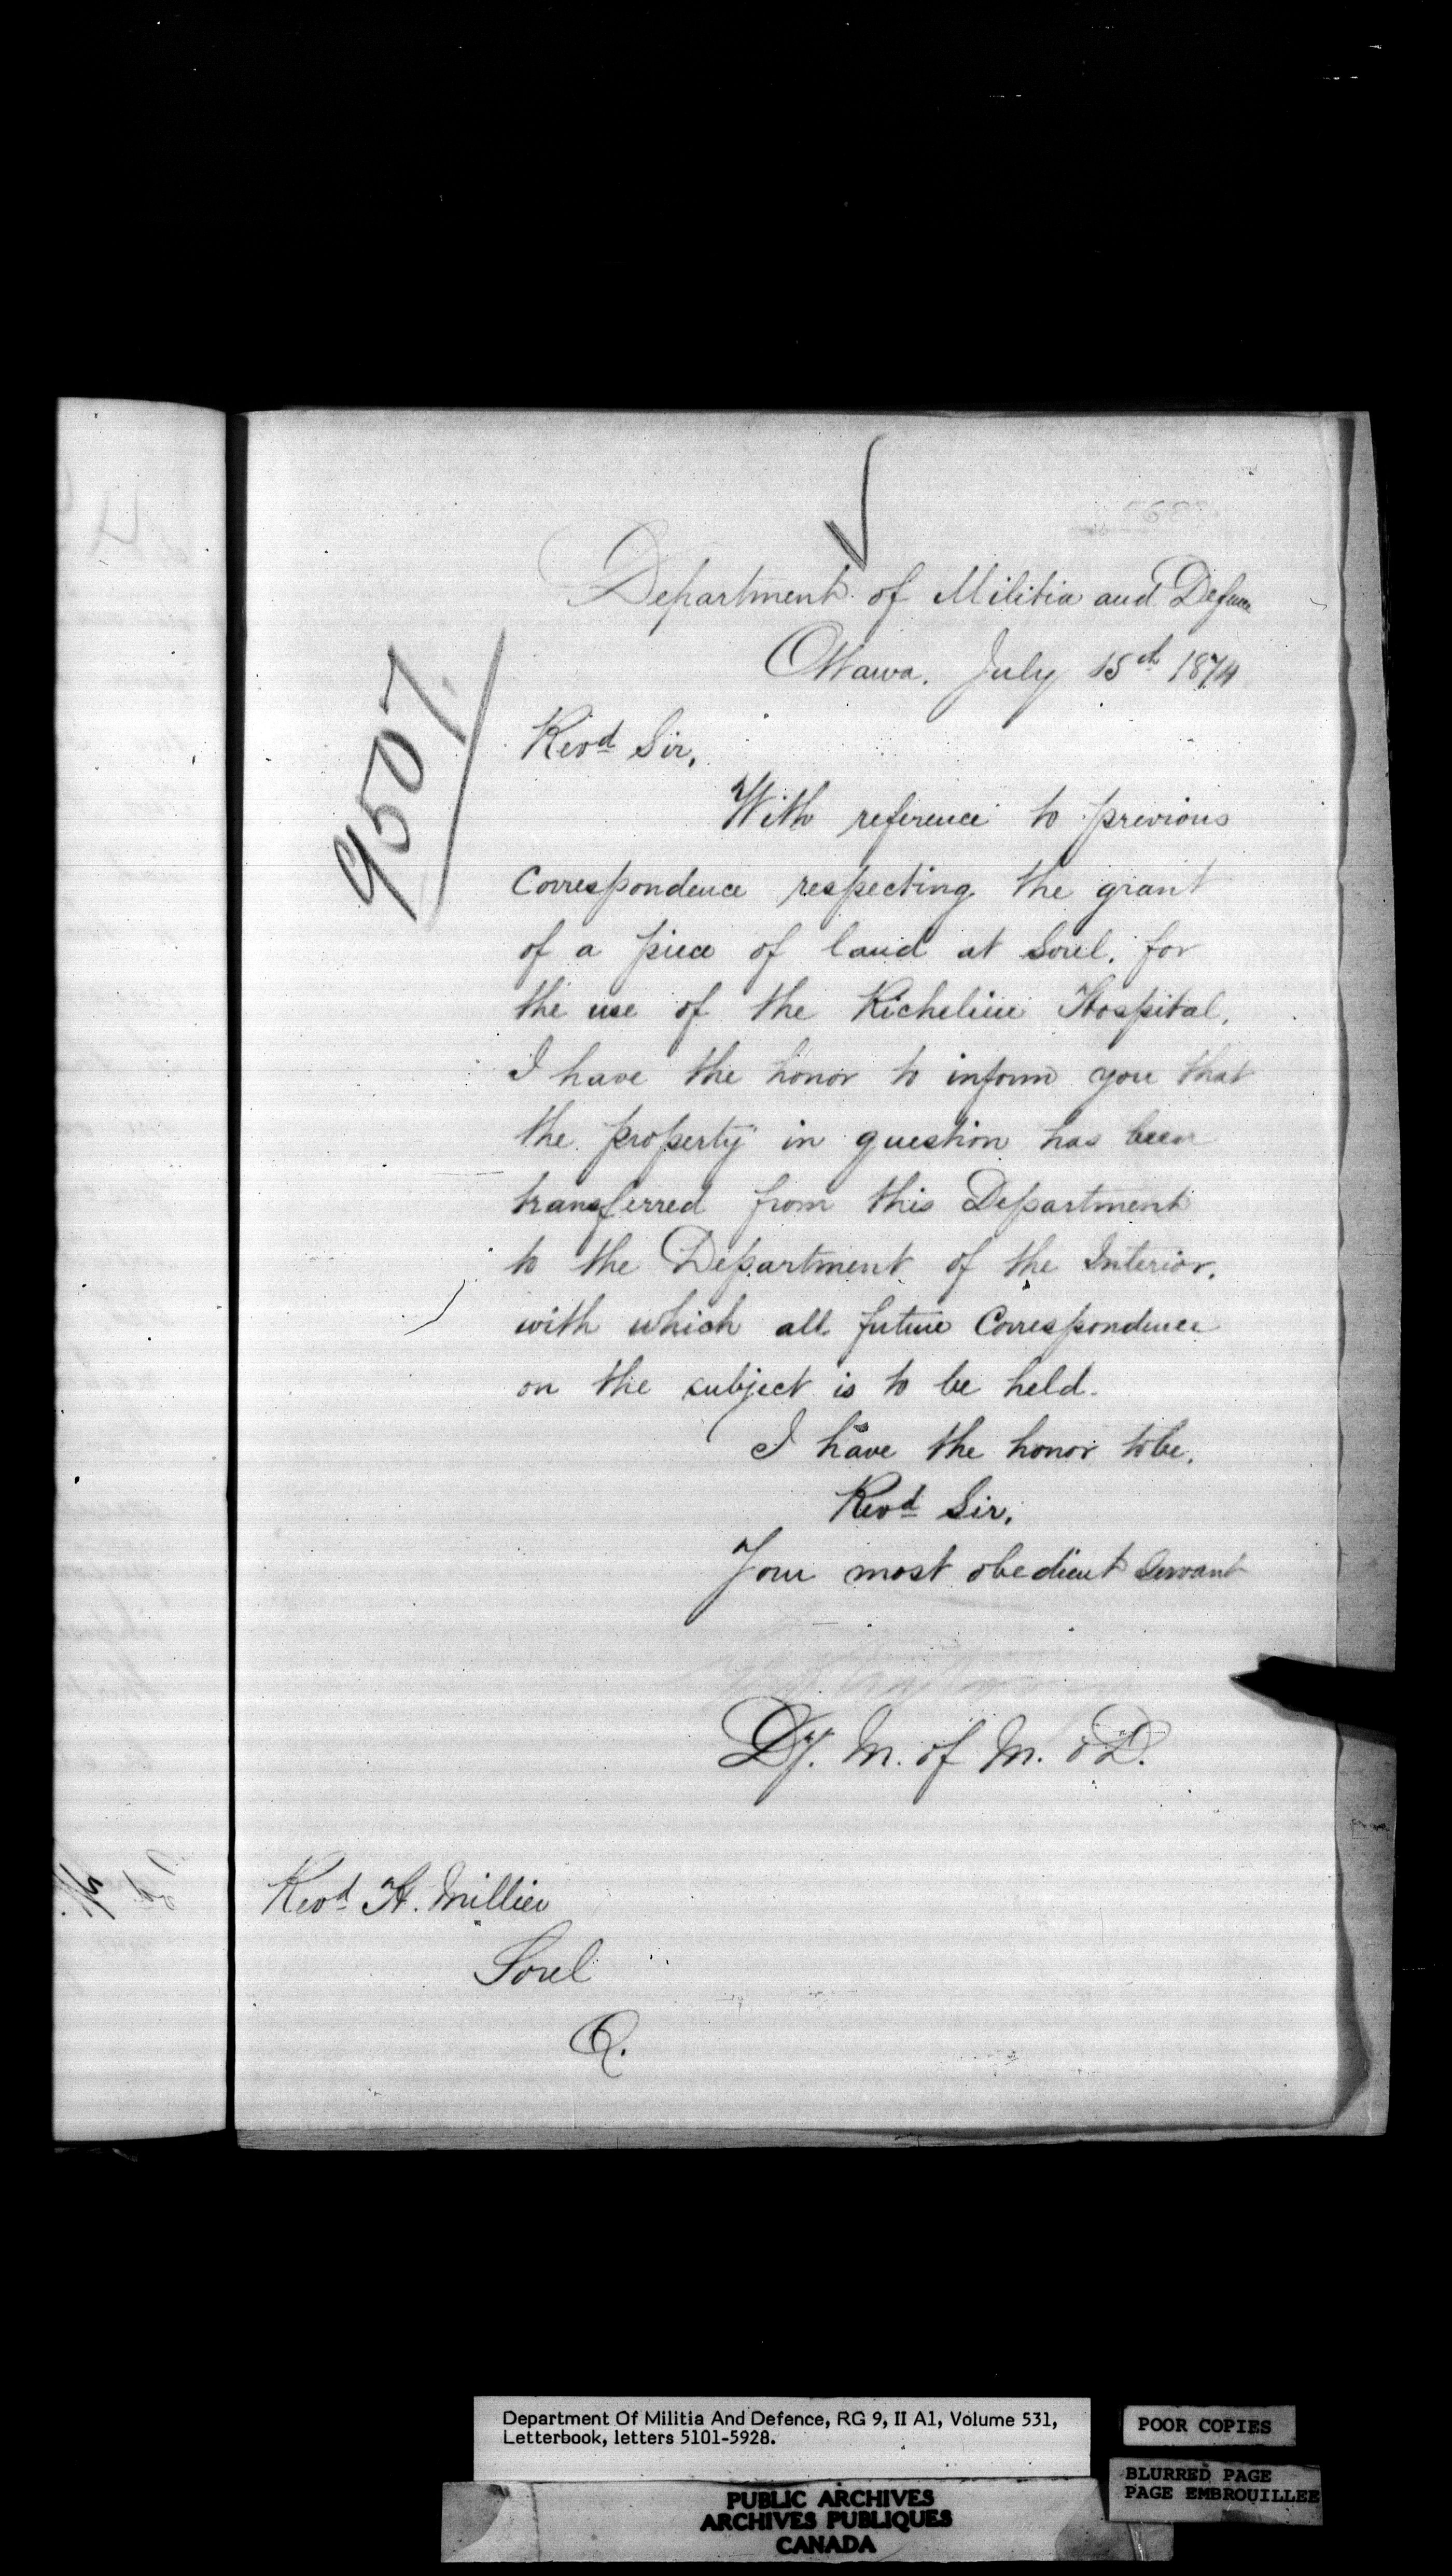 Department of Militia and Defence
Ottawa. July 15th 1874
9507.
Revd Sir,
With reference to previous
Correspondence respecting the grant
of a piece of land at Sorel, for
the use of the Richelieu Hospital,
I have the honor to inform you that
the property in question has been
transferred from this Department
to the Department of the Interior,
with which all future Correspondence
on the subject is to be held.
I have the honor to be,
Revd Sir,
Your most obedient Servant
Dy. M. of M. & D.
Revd H. Millier
Sorel
Q.
Department Of Militia And Defence, RG 9, II A1, Volume 531,
Letterbook, letters 5101-5928.
POOR COPIES
BLURRED PAGE
PAGE EMBROUILLEE
PUBLIC ARCHIVES
ARCHIVES PUBLIQUES
CANADA